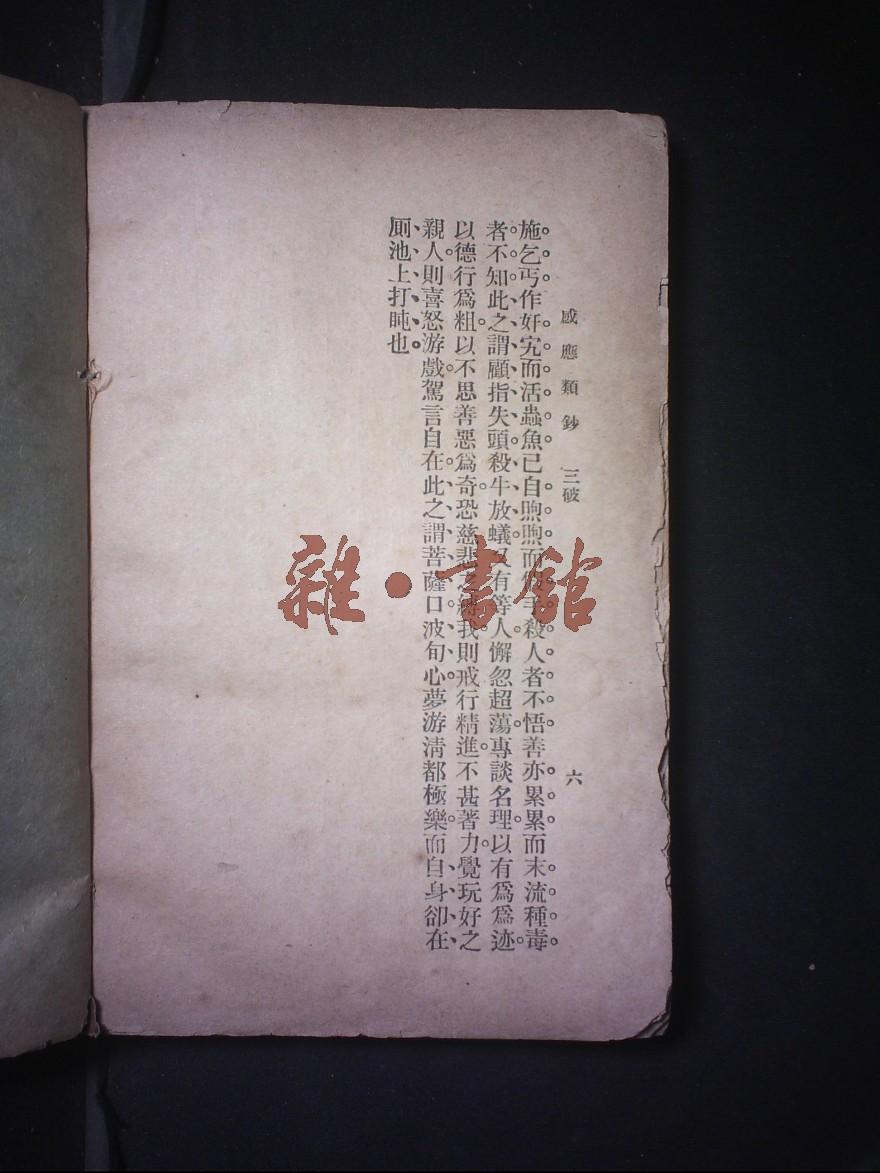 感應類鈔 三破 六
施乞丐作奸宄而活蟲魚已自煦煦而 手殺人者不悟善亦累累而末流種毒
者不知此之謂顧指失頭殺牛放蟻又有等人懈忽超蕩專談名理以有爲爲迹
以德行爲粗以不思善惡爲奇恐慈悲之縛我則戒行精進不甚著力覺玩好之
親人則喜怒游戲駕言自在此之謂菩薩口波旬心夢游清都極樂而自身卻在
厠池上打盹也
雜·書館